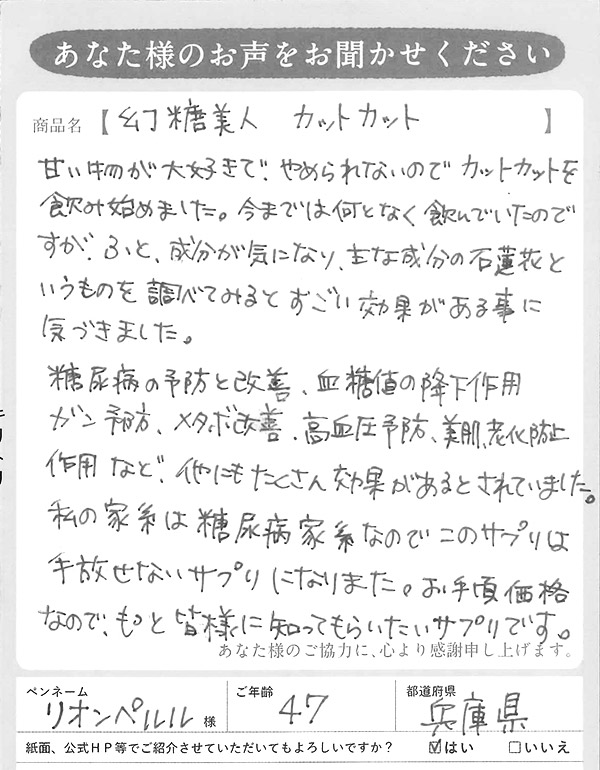 あなた様のお声をお聞かせください
商品名 【 幻糖美人 カットカット 】
甘い物が大好きで、やめられないのでカットカットを
飲み始めました。今までは何となく飲んでいたのです
が、ふと、成分が気になり、主な成分の石蓮花と
いうものを調べてみるとすごい効果がある事に
気づきました。
糖尿病の予防と改善、血糖値の降下作用
ガン予防、メタボ改善、高血圧予防、美肌、老化防止
作用など、他にもたくさん効果があるとされていました。
私の家系は糖尿病家系なのでこのサプリは
手放せないサプリになりました。お手頃価格
なので、もっと皆様に知ってもらいたいサプリです。
あなた様のご協力に、心より感謝申し上げます。
ペンネーム ご年齢 都道府県
リオンペルル 様 47 兵庫県
紙面、公式HP等でご紹介させていただいてもよろしいですか？ ☑はい □いいえ